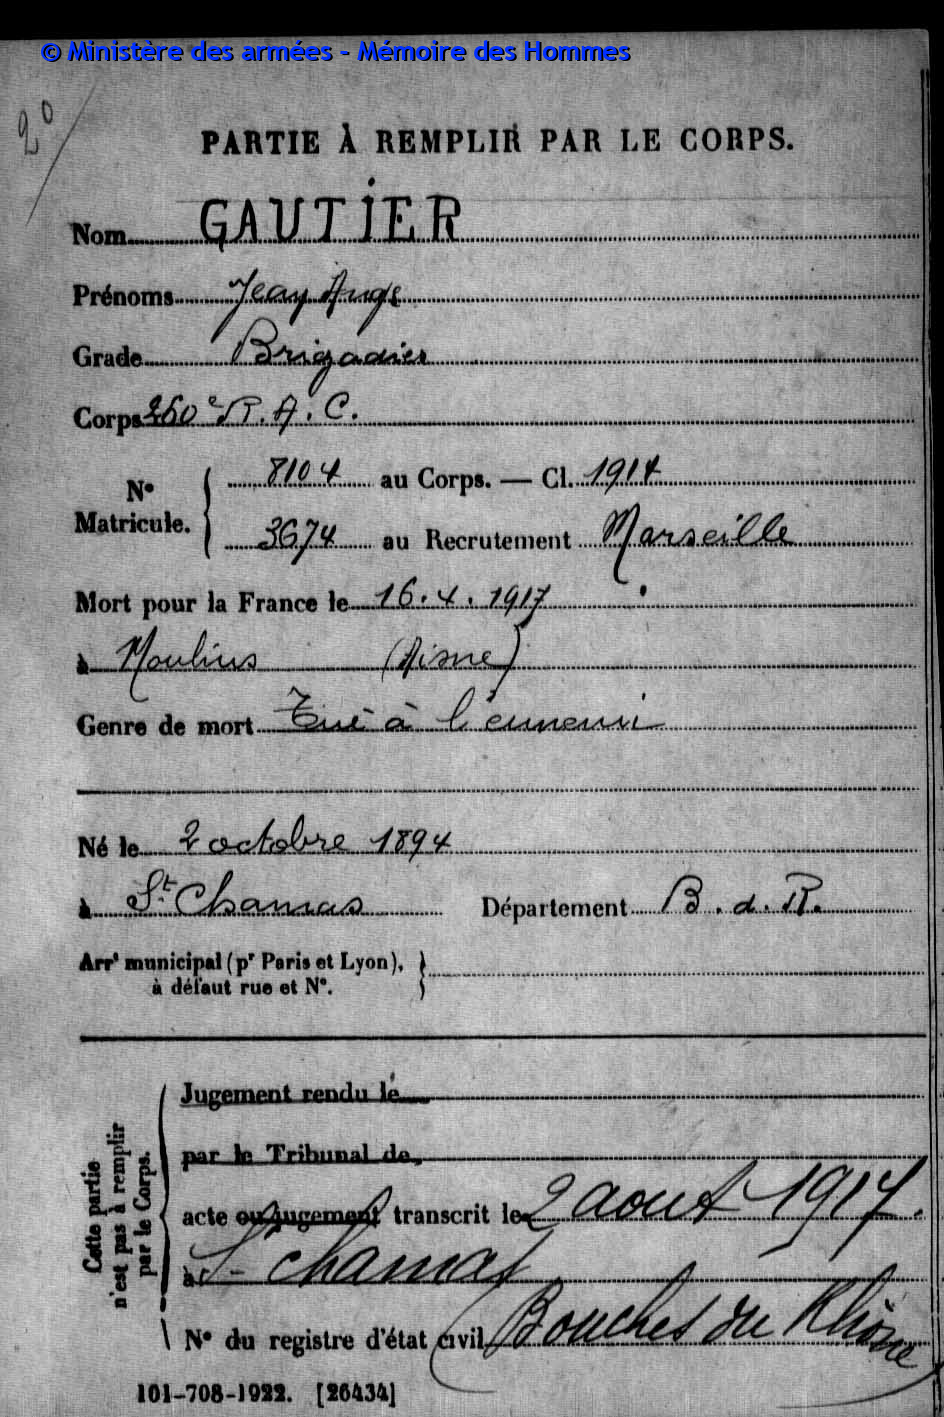 © Ministère des armées - Mémoire des Hommes
20
PARTIE À REMPLIR PAR LE CORPS.
Nom GAUTIER
Prénoms Jean Ange
Grade Brigadier
Corps 260e R. A. C.
N° Matricule. { 8104 au Corps. — Cl. 1914
3674 au Recrutement Marseille
Mort pour la France le 16. 4. 1917
à Moulins (Aisne)
Genre de mort Tué à l'ennemi
Né le 2 octobre 1894
à St. Chamas Département B. d. R.
Arrt municipal (pr Paris et Lyon),
à défaut rue et N°.
Cette partie
n'est pas à remplir
par le Corps.
Jugement rendu le
par le Tribunal de
acte ou jugement transcrit le 2 aout 1917.
à St chamas
N° du registre d'état civil (Bouches du Rhône
101-708-1922. [26434]